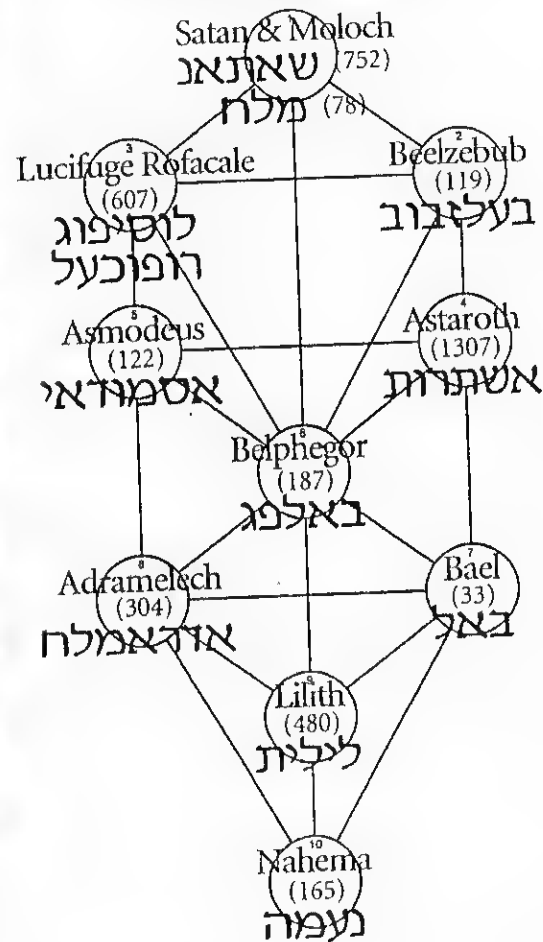 1
Satan & Moloch
שאתאנ (752)
מלח (78)
3
Lucifuge Rofacale
(607)
לוסיפוג
רופוכעל
2
Beelzebub
(119)
בעלזבוב
5
Asmodeus
(122)
אסמודאי
4
Astaroth
(1307)
אשתרות
6
Belphegor
(187)
באלפג
8
Adramelech
(304)
אדראמלח
7
Bael
(33)
באל
9
Lilith
(480)
לילית
10
Nahema
(165)
נעמה